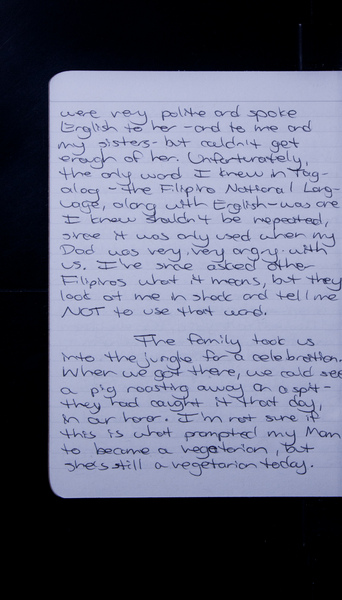 were very polite and spoke
English to her - and to me and
my sisters - but couldn't get
enough of her. Unfortunately,
the only word I knew in Tag-
alog - the Filipino National Lang-
uage, along with English - was one
I knew shouldn't be repeated,
since it was only used when my
Dad was very, very angry with
us. I've since asked other
Filipinos what it means, but they
look at me in shock and tell me
NOT to use that word.
The family took us
into the jungle for a celebration.
When we got there, we could see
a pig roasting away on a spit -
they had caught it that day,
in our honor. I'm not sure if
this is what prompted my Mom
to become a vegetarian, but
she's still a vegetarian today.